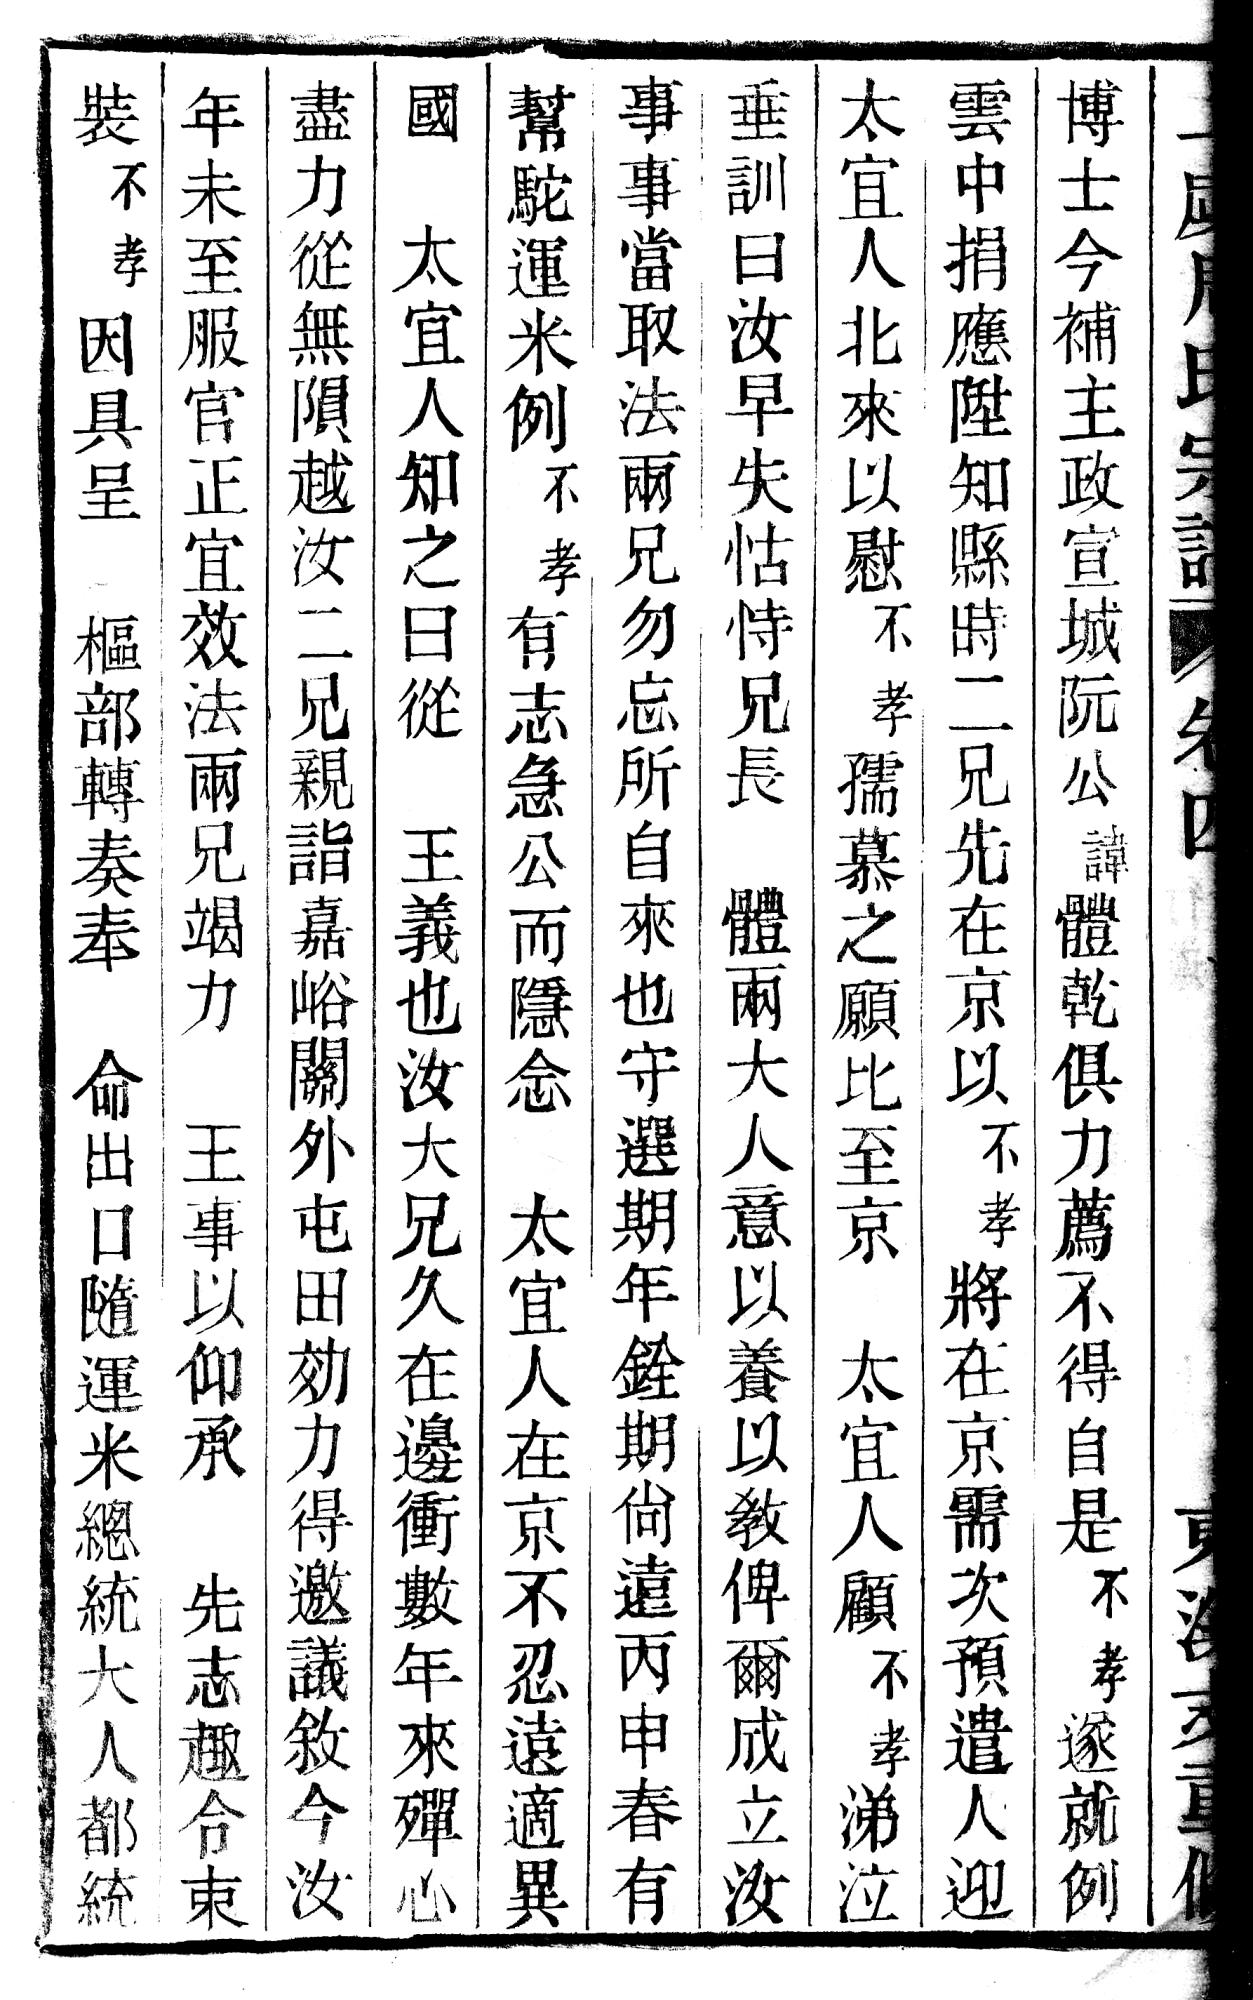 博士今補主政宣城阮公諱體乾俱力薦不得自是不孝遂就例
雲中捐應陞知縣時二兄先在京以不孝將在京需次預遣人迎
太宜人北來以慰不孝孺慕之願比至京　太宜人顧不孝涕泣
垂訓曰汝早失怙恃兄長　體兩大人意以養以教俾爾成立汝
事事當取法兩兄勿忘所自來也守選期年銓期尙遠丙申春有
幫駝運米例不孝有志急公而隱念　太宜人在京不忍遠適異
國　太宜人知之曰從　王義也汝大兄久在邊衝數年來殫心
盡力從無隕越汝二兄親詣嘉峪關外屯田効力得邀議敘今汝
年未至服官正宜效法兩兄竭力　王事以仰承　先志趣令束
裝不孝因具呈　樞部轉奏奉　命出口隨運米總統大人都統